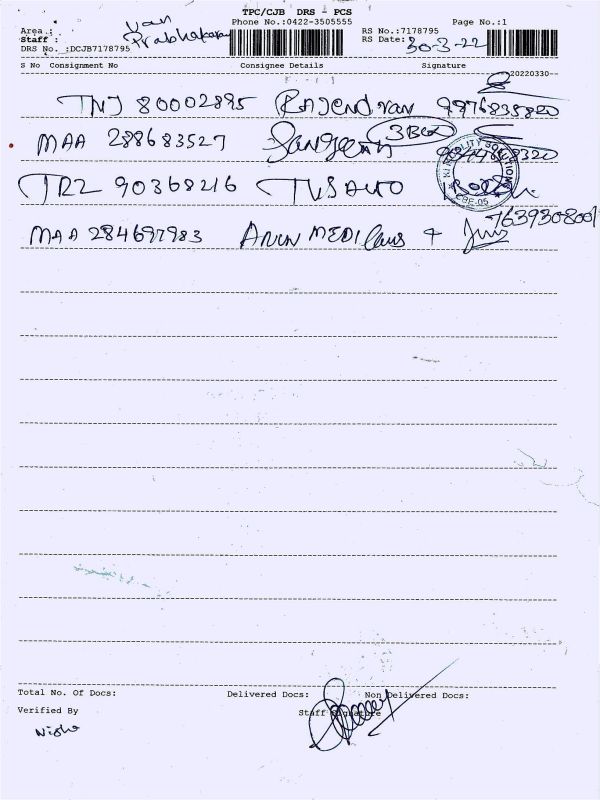 TPC/CJB DRS - PCS
Van
Phone No.:0422-3505555
Page No.:1
Area :
Prabhakaran
RS No.:7178795
Staff :
RS Date: 30-3-22
DRS No. :DCJB7178795
S No Consignment No Consignee Details Signature
20220330--
TNJ 80002895 RAJENDRAN 9976835820
MAA 288683527 Sangeeth 3 Box
TRZ 90368216 TVS AUTO
CBE-05
7639308001
MAA 284697983 ARUN MEDI
Total No. Of Docs: Delivered Docs: Non Delivered Docs:
Verified By Staff Signature
Nisha